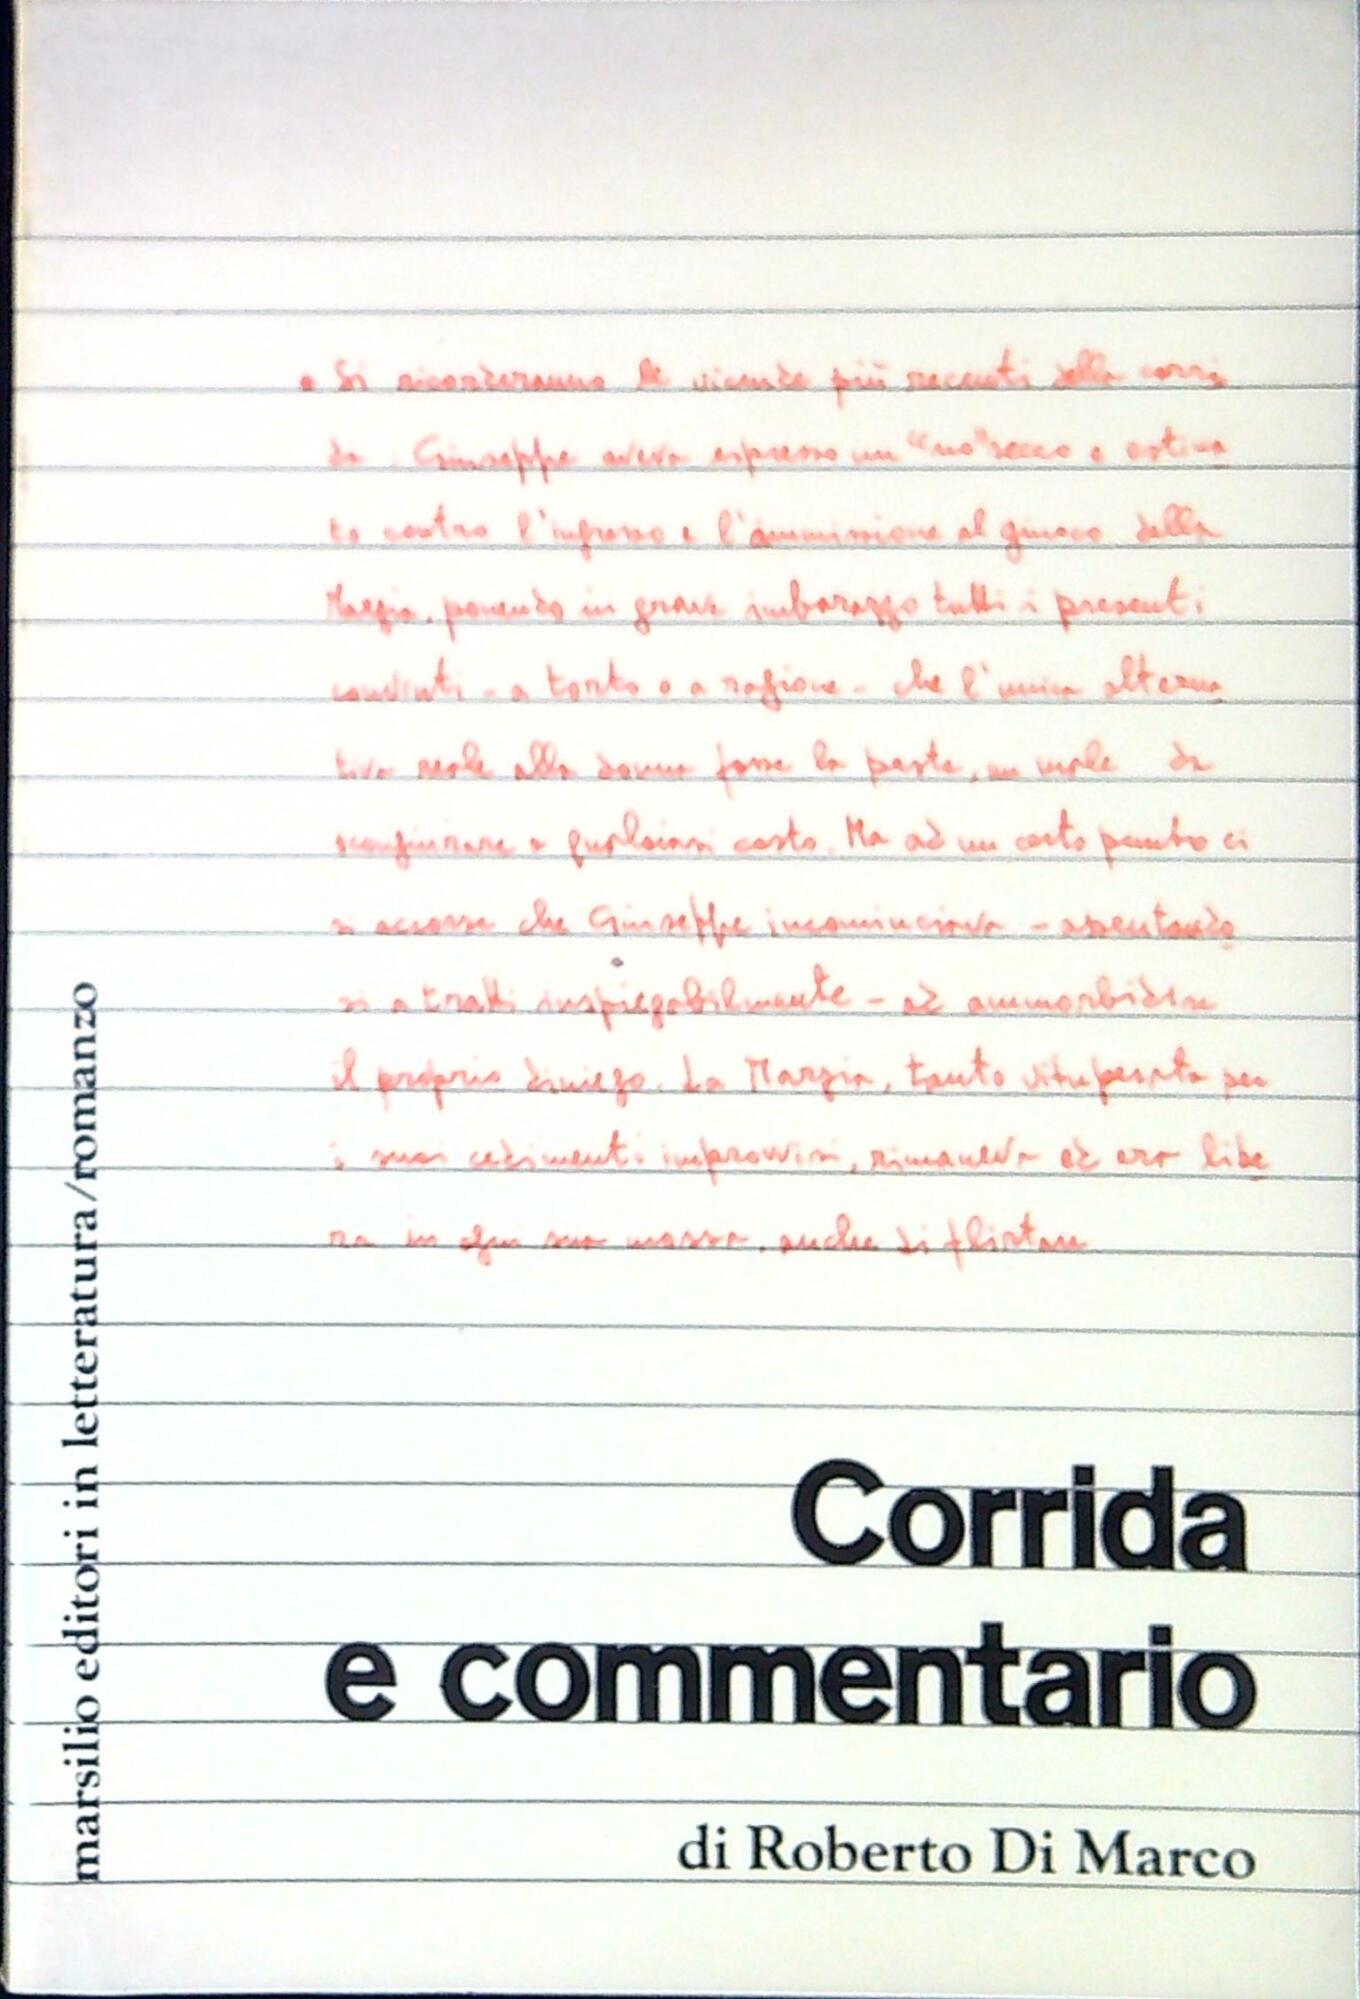 Si ricorderanno le vicende più recenti della corri
da. Giuseppe aveva espresso un "no" secco e ostina
to contro l'ingresso e l'ammissione al giuoco della
Marzia, ponendo in grave imbarazzo tutti i presenti
convinti - a torto o a ragione - che l'unica alterna
tiva reale alla donna fosse la peste, un male da
scongiurare a qualsiasi costo. Ma ad un certo punto ci
si accorse che Giuseppe incominciava - assentando
si a tratti inspiegabilmente - ad ammorbidire
il proprio diniego. La Marzia, tanto vituperata per
i suoi cedimenti improvvisi, rimaneva ed era libe
ra in ogni sua mossa, anche di flirtare
Corrida
e commentario
di Roberto Di Marco
marsilio editori in letteratura/romanzo